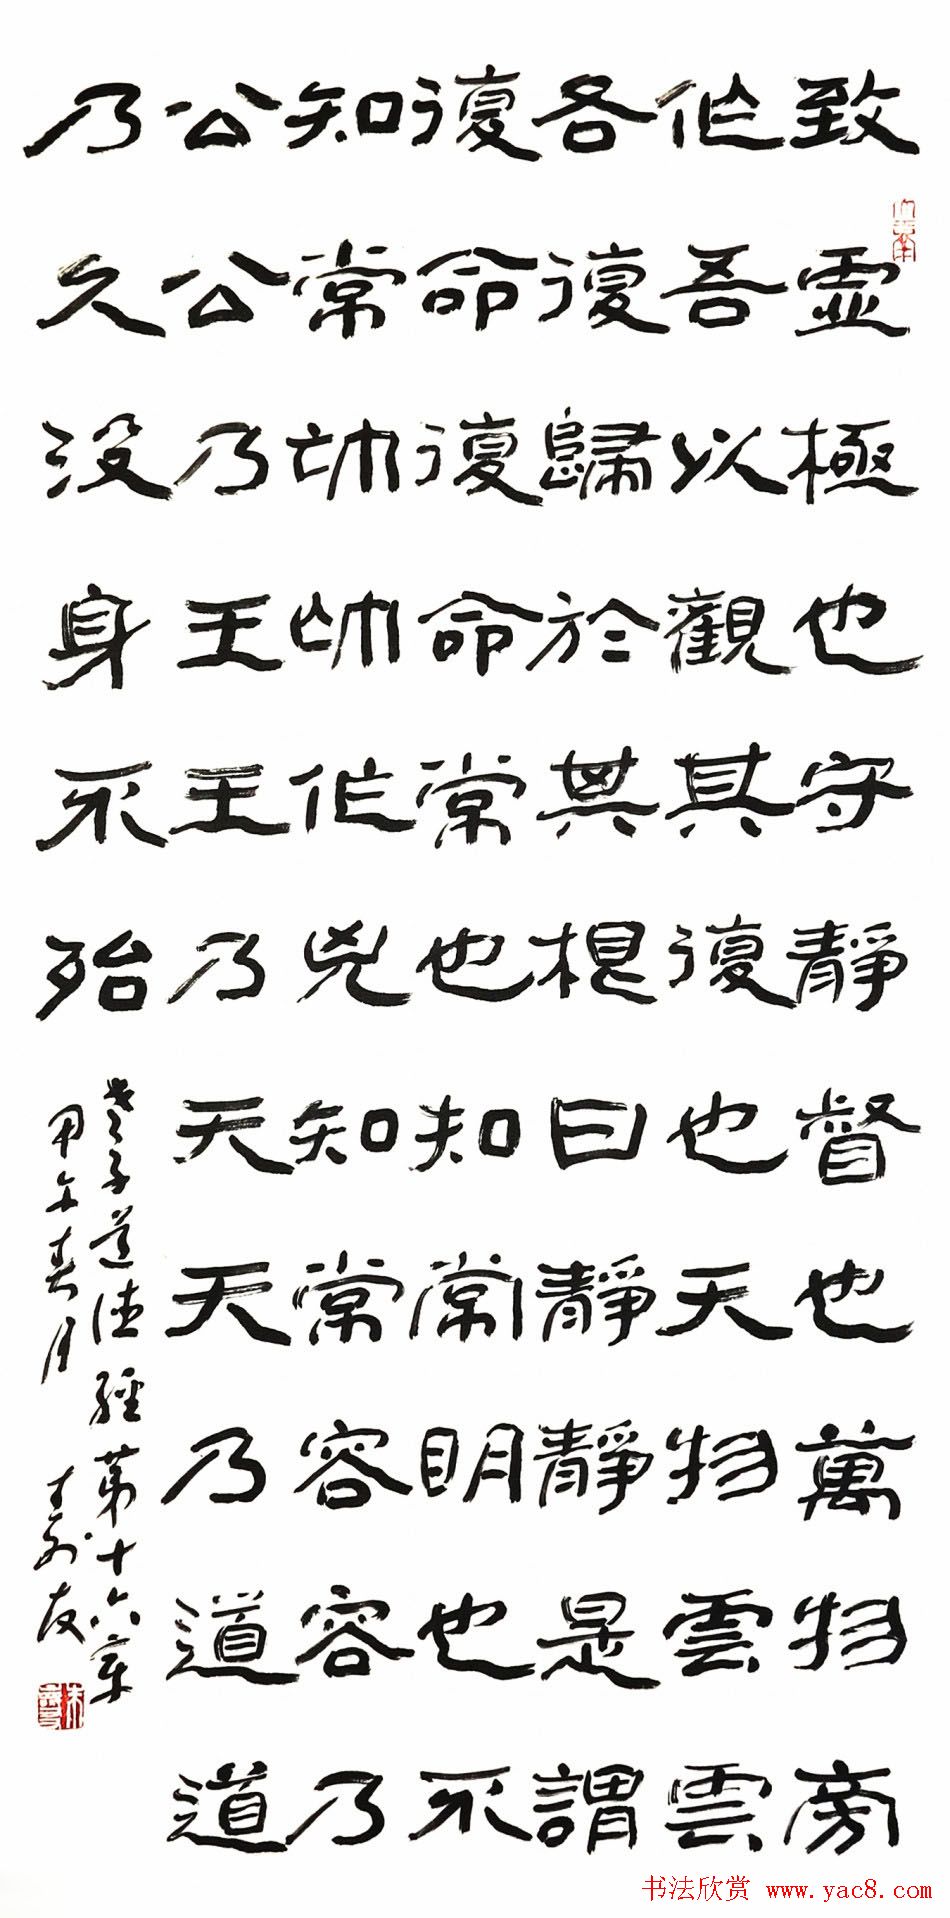 致虛極也守靜督也萬物旁
作吾以觀其復也天物雲雲
各復歸於其根曰靜靜是謂
復命復命常也知常明也不
知常㠵㠵作兇知常容容乃
公公乃王王乃天天乃道道
乃久没身不殆
老子道德經第十六章
甲午春月 朱寿友
书法欣赏 www.yac8.com